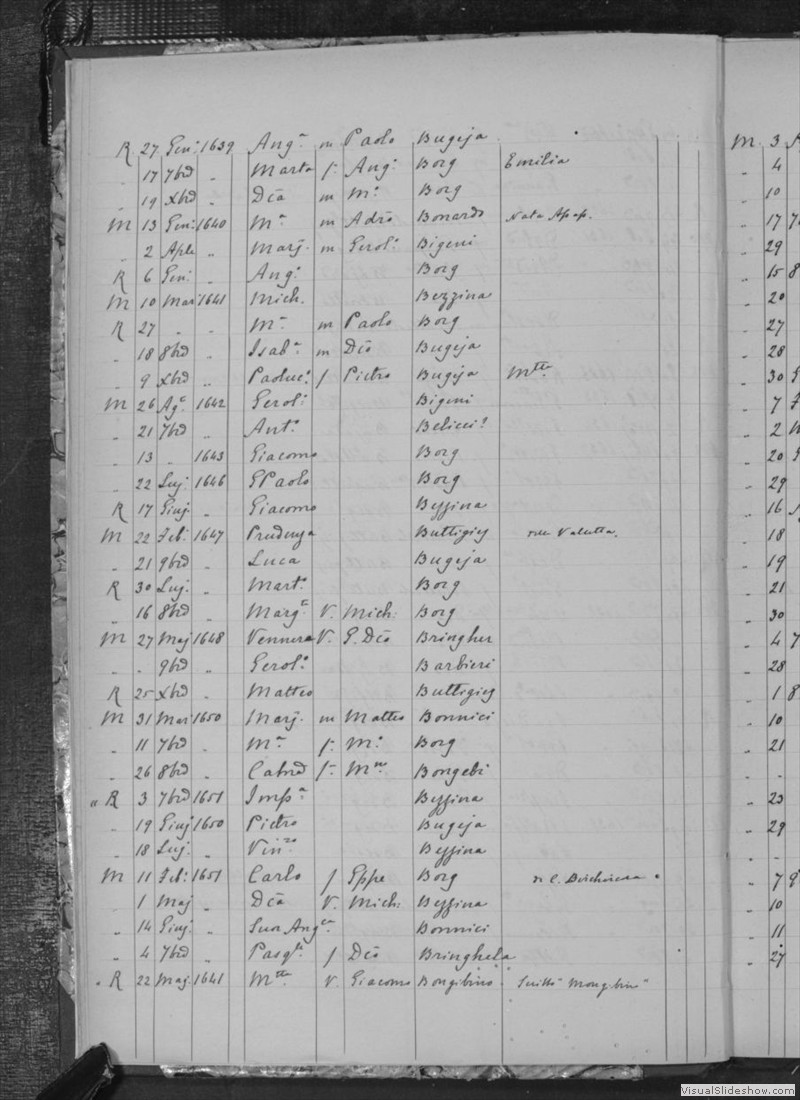 R 27 Gen: 1639 Ang.ª m Paolo Bugeja
„ 17 7brd „ Marta f. Ang.º Borg Emilia
„ 19 Xbrd „ Dca m M.º Borg
M 13 Gen: 1640 M.ª m Adrõ Bonardo Nata Apap.
„ 2 Aple „ Marj. m Gerol.º Bigeni
R 6 Gen: „ Ang.º Borg
M 10 Mar 1641 Mich. Bezzina
R 27 „ „ M.ª m Paolo Borg
„ 18 8brd „ Isab.ª m Dco Bugeja
„ 9 Xbrd „ Paoluc.ª f Pietro Bugeja Mtta
M 26 Ag.º 1642 Gerol.º Bigeni
„ 21 7brd „ Ant.º
„ 13 „ 1643 Giacomo Borg
„ 22 Luj. 1646 GPaolo Borg
R 17 Giuj. „ Giacomo Bezzina
M 22 Feb: 1647 Prudenza Buttigieg Valletta.
„ 21 9brd „ Luca Bugeja
R 30 Luj. „ Mart.ª Borg
„ 16 8brd „ Marg.ª V. Mich: Borg
M 27 Maj 1648 Vennera V. G. Dco Bringher
„ „ 9brd „ Gerol.ª Barbieri
R 25 Xbrd „ Matteo Buttigieg
M 31 Mar 1650 Marj. m Matteo Bonnici
„ 11 7brd „ M.ª f. M.º Borg
„ 26 8brd „ f. Bongebi
„ R 3 7brd 1651 Imp.ª Bezzina
„ 19 Giuj 1650 Pietro Bugeja
„ 18 Luj. „ Vin.zo Bezzina
M 11 Feb: 1651 Carlo f Gppe Borg
„ 1 Maj „ Dca V. Mich: Bezzina
„ 14 Giuj. „ Suor Ang.ca Bonnici
„ 4 7brd „ Pasq.la f Dco Bringhela
„ R 22 Maj. 1641 Mtta V. Giacomo Bongibino
M. 3
„ 4
„ 10
„ 17
„ 29
„ 15 8
„ 20
„ 27
„ 28
„ 30
„ 7
„ 2
„ 20
„ 29
„ 16
„ 18
„ 19
„ 21
„ 30
„ 4 7
„ 28
„ 1 8
„ 10
„ 21
„ „
„ 23
„ 29
„ „
„ 7 9
„ 10
„ 11
„ 27
VisualSlideshow.com